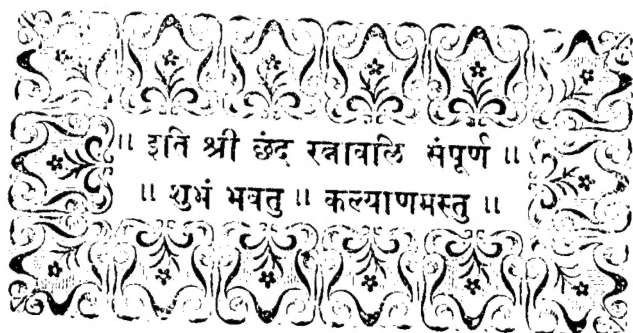 ॥ इति श्री छंद रत्नावलि संपूर्ण ॥
॥ शुभं भवतु ॥ कल्याणमस्तु ॥